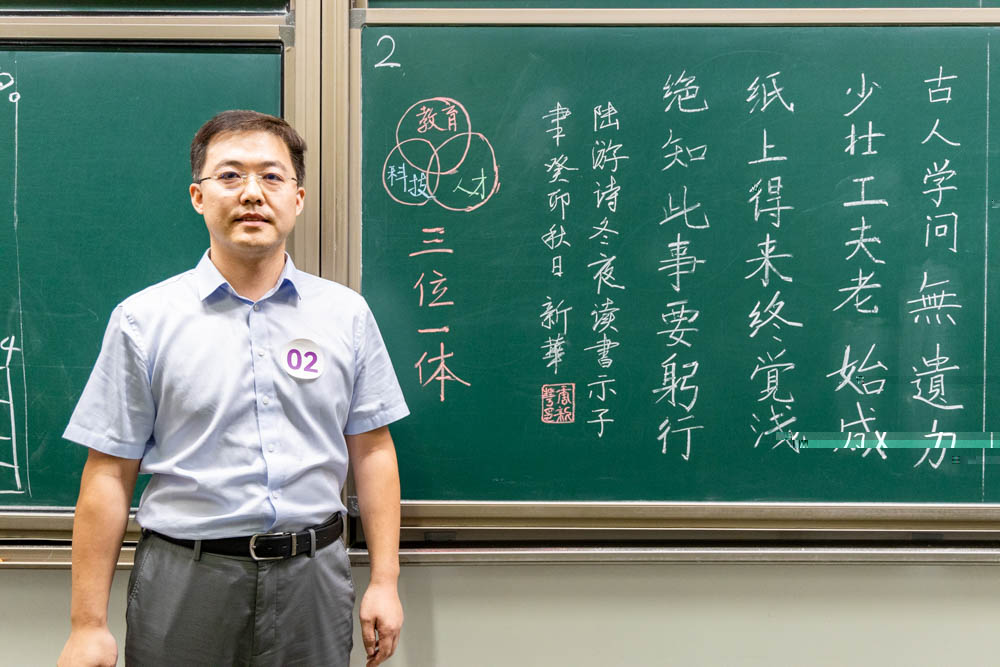 古人学问無遺力
少壮工夫老始成
纸上得来终觉浅
绝知此事要躬行
陆游诗冬夜读书示子
聿癸卯秋日 新華
2
教育
科技
人才
三位一体
02